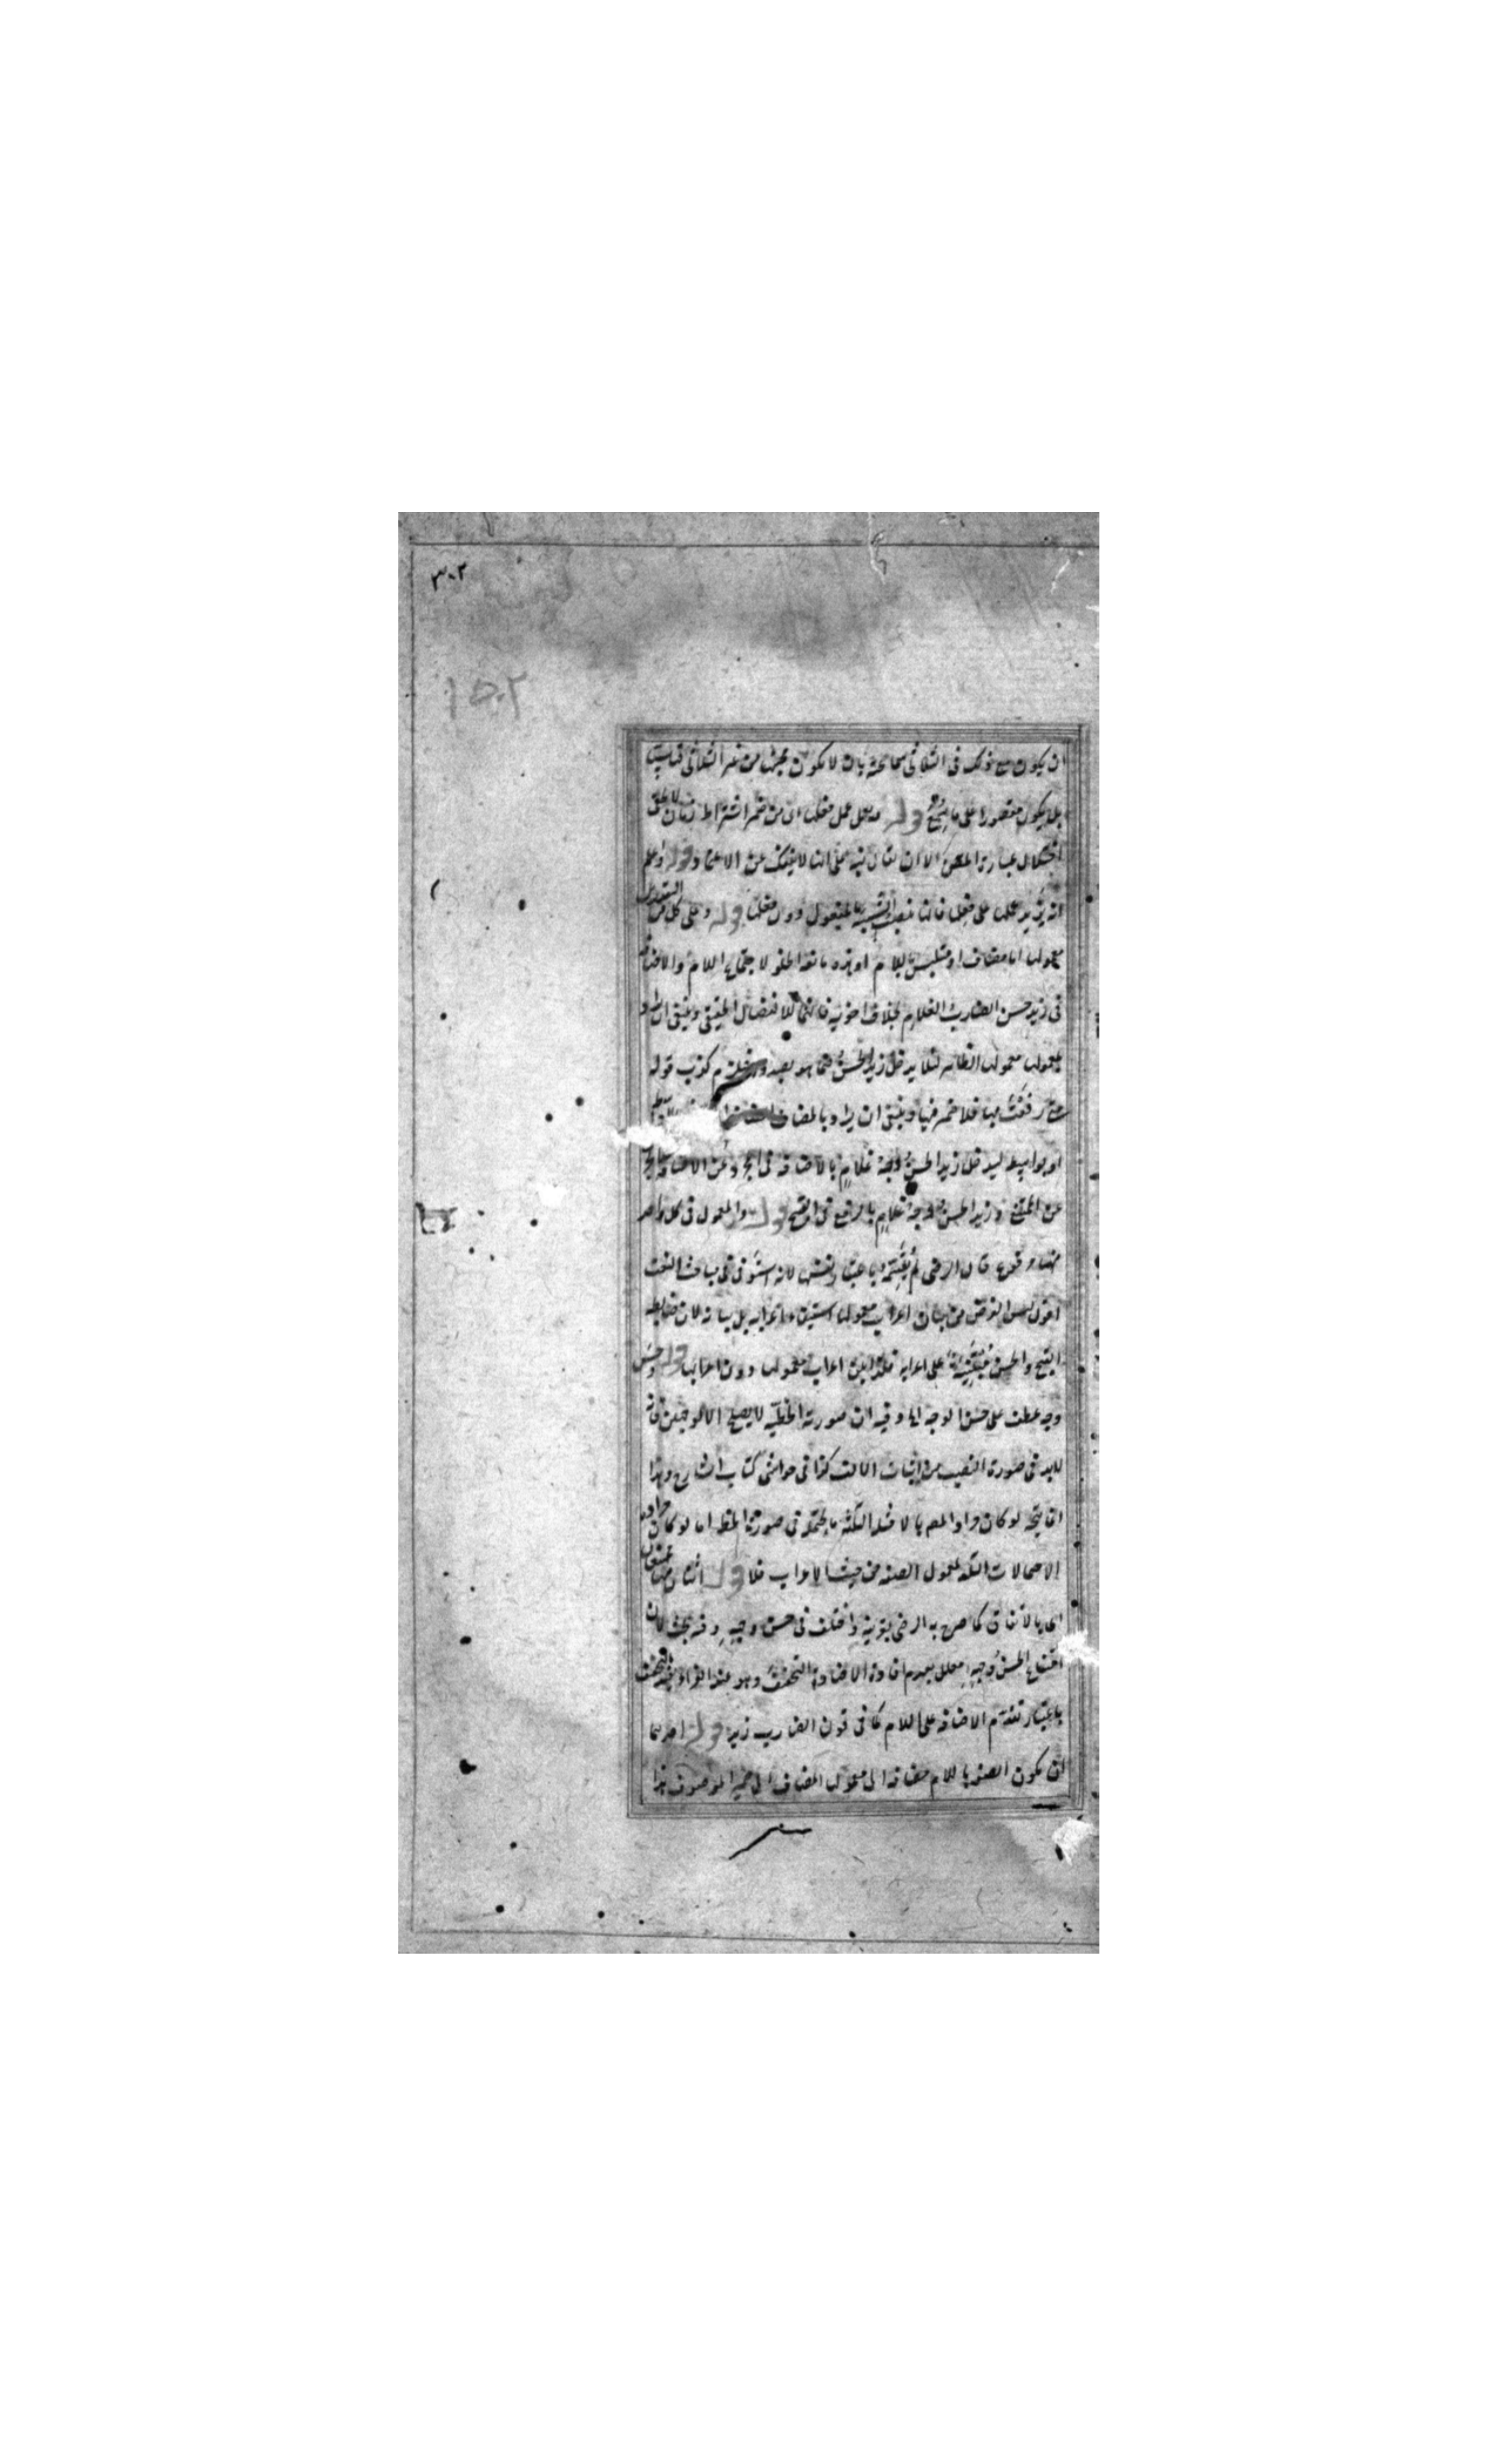 ٣٠٢
١٥٠٢
ان يكون مع ذلك فى الثلاثى سماعية بان لا يكون مجيئها من غير الثلاثى قياسيا
بل يكون مقصورا على ما قوله وتعمل عمل فعلها من غير اشتراط زمان
عبارة المص الا ان يقال نبه على انها لا ينفك عن الاعتماد قوله واعلم
انه يزيد عملها على فعلها فانها تنصب الشبيه بالمفعول دون فعلها قوله وعلى كل من التقديرين
معمولها اما مضاف او متلبس باللام او هذه مانعة الخلو لاجتماع اللام والاضافة
فى زيد حسن الضارب الغلام بخلاف اخويه فانهما للانفصال الحقيقى وينبغى ان يراد
بمعمولها معمولها الظاهر لئلا يدخل زيد الحسن فيما هو بصدده كذب قوله
متى رفعت بها فلا ضمير فيها وينبغى ان يراد بالمضاف
او بواسطة ليدخل زيد الحسن وجه غلام بالاضافة فى
عن الممتنع وزيد الحسن وجه غلام بالرفع فى القبيح قوله والمعمول فى كل واحد
منها مرفوع قال الرضى لم يقسمه باعتبار نفسها لانه استوفى فى باب النعت
اقول ليس الغرض من بيان اعراب معمولها استيفاء اعرابه بل بيانه لان ضابطة
القبيح والحسن على اعرابه فلذا بين اعراب معمولها دون اعرابها قوله وحسن
وجه عطف على حسن الوجه وفيه ان صورة الخطية لا يصلح الا لوجهين فانه
لابد فى صورة النصب من اثبات الالف كذا فى حواشى كتاب الشارح وهذا
انما يتجه لو كان مراد المص بالامثلة الثلثة ما يحتمله فى صورة الخط اما لو كان مراده
الاحتمالات الثلثة لمعمول الصفة من حيث الاعراب فلا قوله اثنان منها ممتنعان
اى بالاتفاق كما صرح به الرضى بقرينة واختلف فى حسن وجهه وفيه بحث لان
امتناع الحسن وجهه معلل بعدم افادة الاضافة التخفيف وهو عند الفراء يفيد التخفيف
باعتبار تقدم الاضافة على اللام كما فى قولنا الضارب زيد قوله احدهما
ان يكون الصفة باللام مضافة الى معمولها المضاف الى ضمير الموصوف هذا